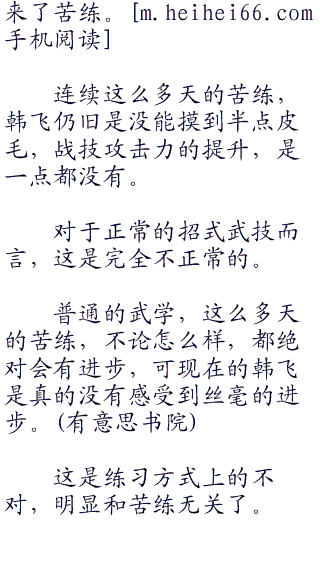 来了苦练。[m.heihei66.com
手机阅读]
连续这么多天的苦练，
韩飞仍旧是没能摸到半点皮
毛，战技攻击力的提升，是
一点都没有。
对于正常的招式武技而
言，这是完全不正常的。
普通的武学，这么多天
的苦练，不论怎么样，都绝
对会有进步，可现在的韩飞
是真的没有感受到丝毫的进
步。(有意思书院)
这是练习方式上的不
对，明显和苦练无关了。